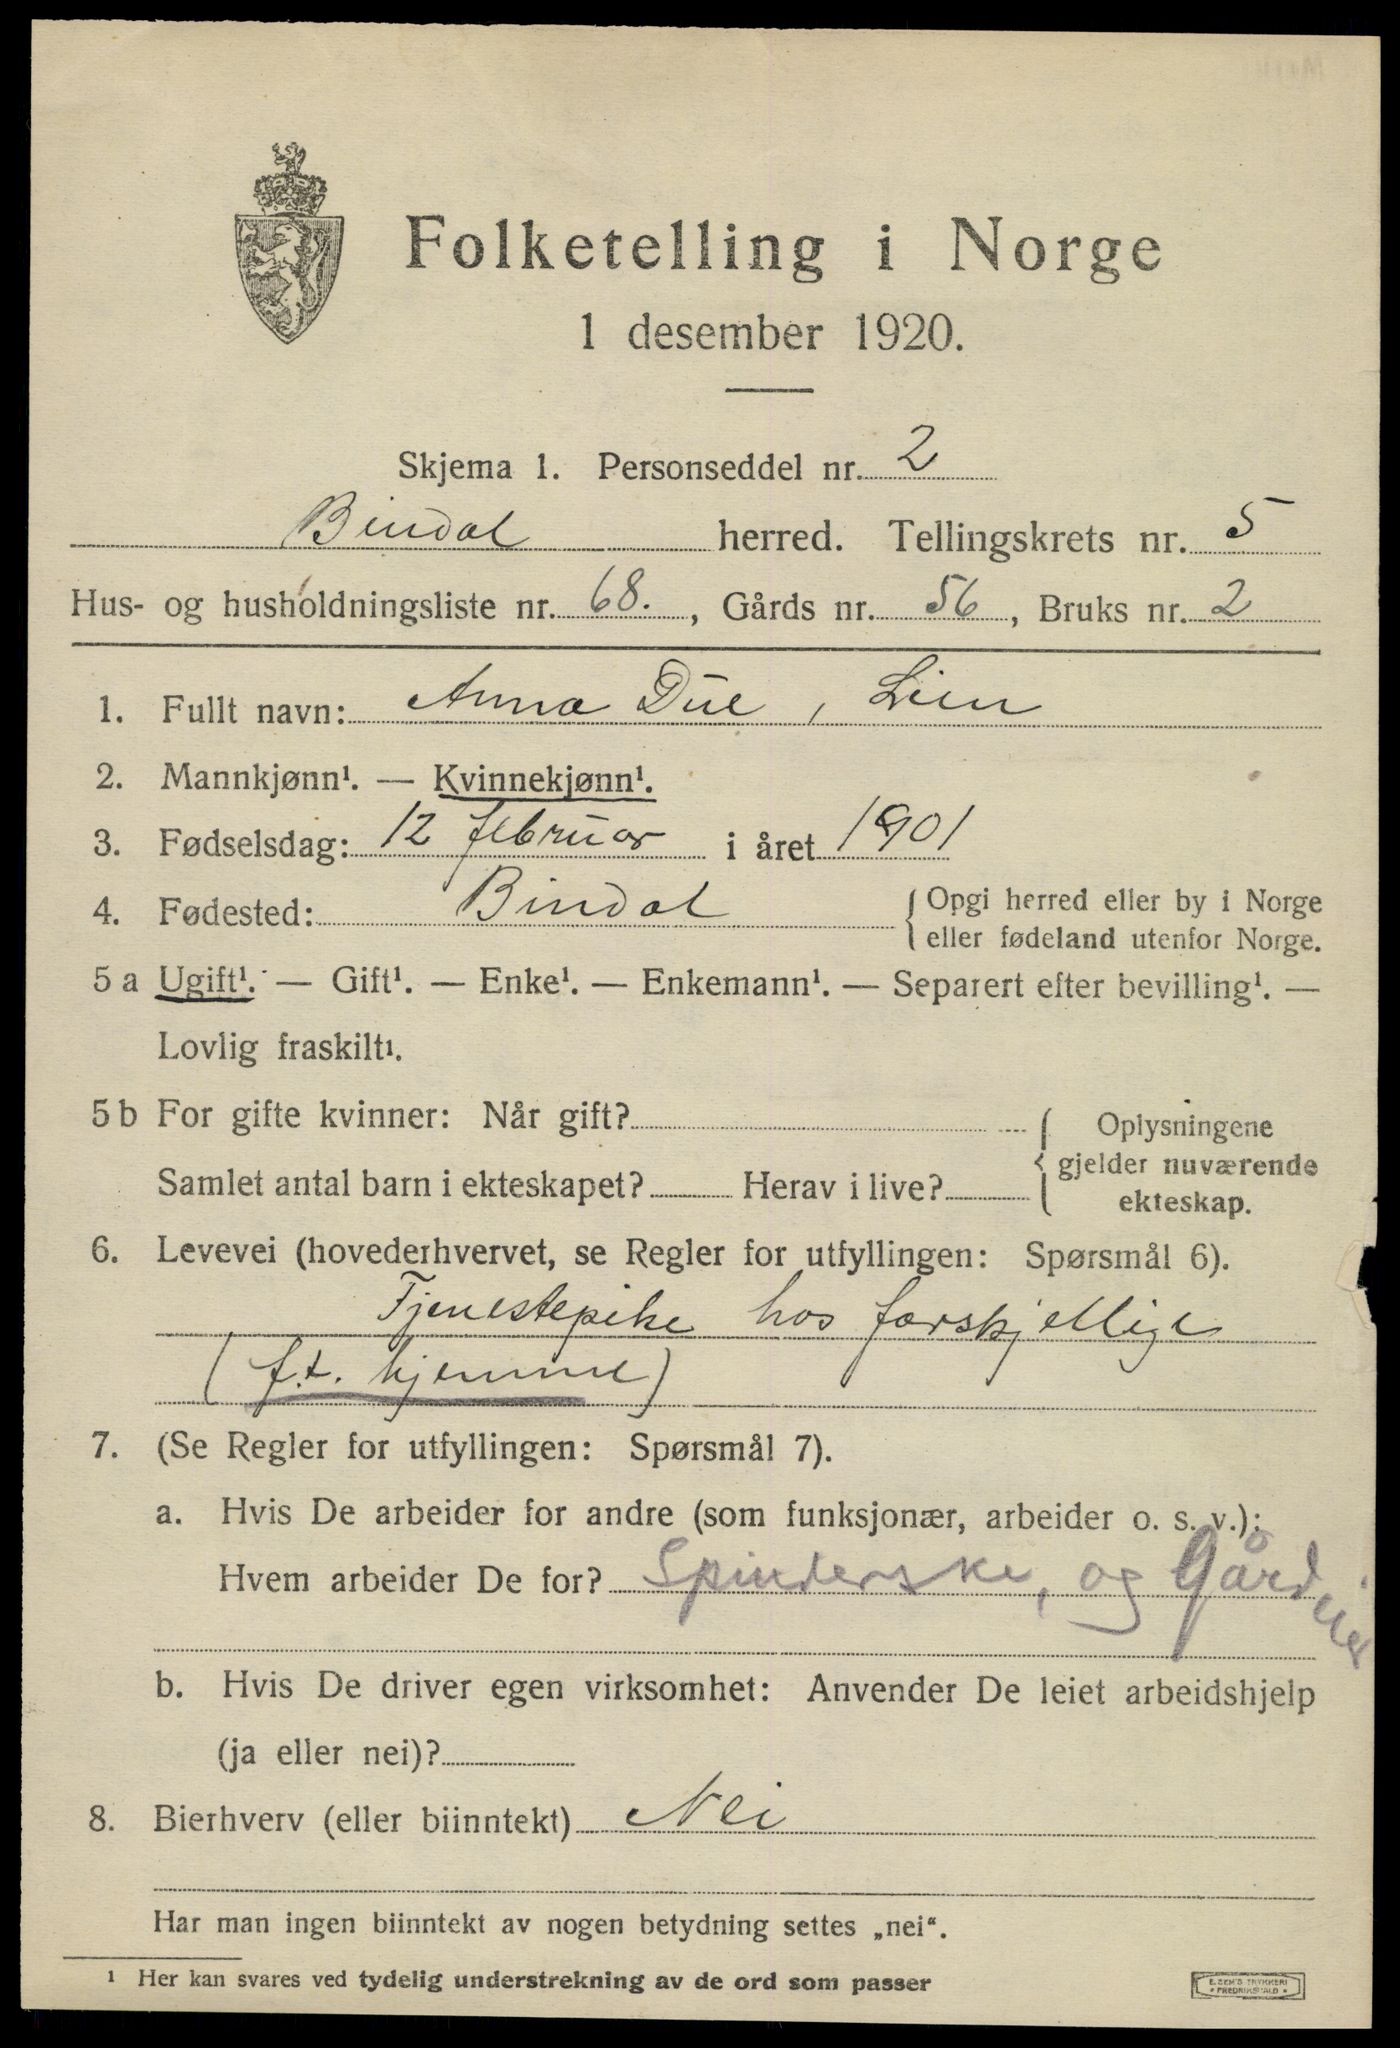 Folketelling i Norge
1 desember 1920.
Skjema 1. Personseddel nr. 2
Bindal herred. Tellingskrets nr. 5
Hus- og husholdningsliste nr. 68. , Gårds nr. 56 , Bruks nr. 2
1. Fullt navn: Anna Due, Lien
2. Mannkjønn¹. — Kvinnekjønn¹.
3. Fødselsdag: 12 februar i året 1901
4. Fødested: Bindal { Opgi herred eller by i Norge
eller fødeland utenfor Norge.
5 a Ugift¹. — Gift¹. — Enke¹. — Enkemann¹. — Separert efter bevilling¹. —
Lovlig fraskilt¹.
5 b For gifte kvinner: Når gift? { Oplysningene
gjelder nuværende
Samlet antal barn i ekteskapet? Herav i live? ekteskap.
6. Levevei (hovederhvervet, se Regler for utfyllingen: Spørsmål 6).
Tjenestepike hos forskjellige
(f.t. hjemme)
7. (Se Regler for utfyllingen: Spørsmål 7).
a. Hvis De arbeider for andre (som funksjonær, arbeider o. s. v.):
Hvem arbeider De for? Spinderske, og
b. Hvis De driver egen virksomhet: Anvender De leiet arbeidshjelp
(ja eller nei)?
8. Bierhverv (eller biinntekt) Nei
Har man ingen biinntekt av nogen betydning settes „nei“.
¹ Her kan svares ved tydelig understrekning av de ord som passer